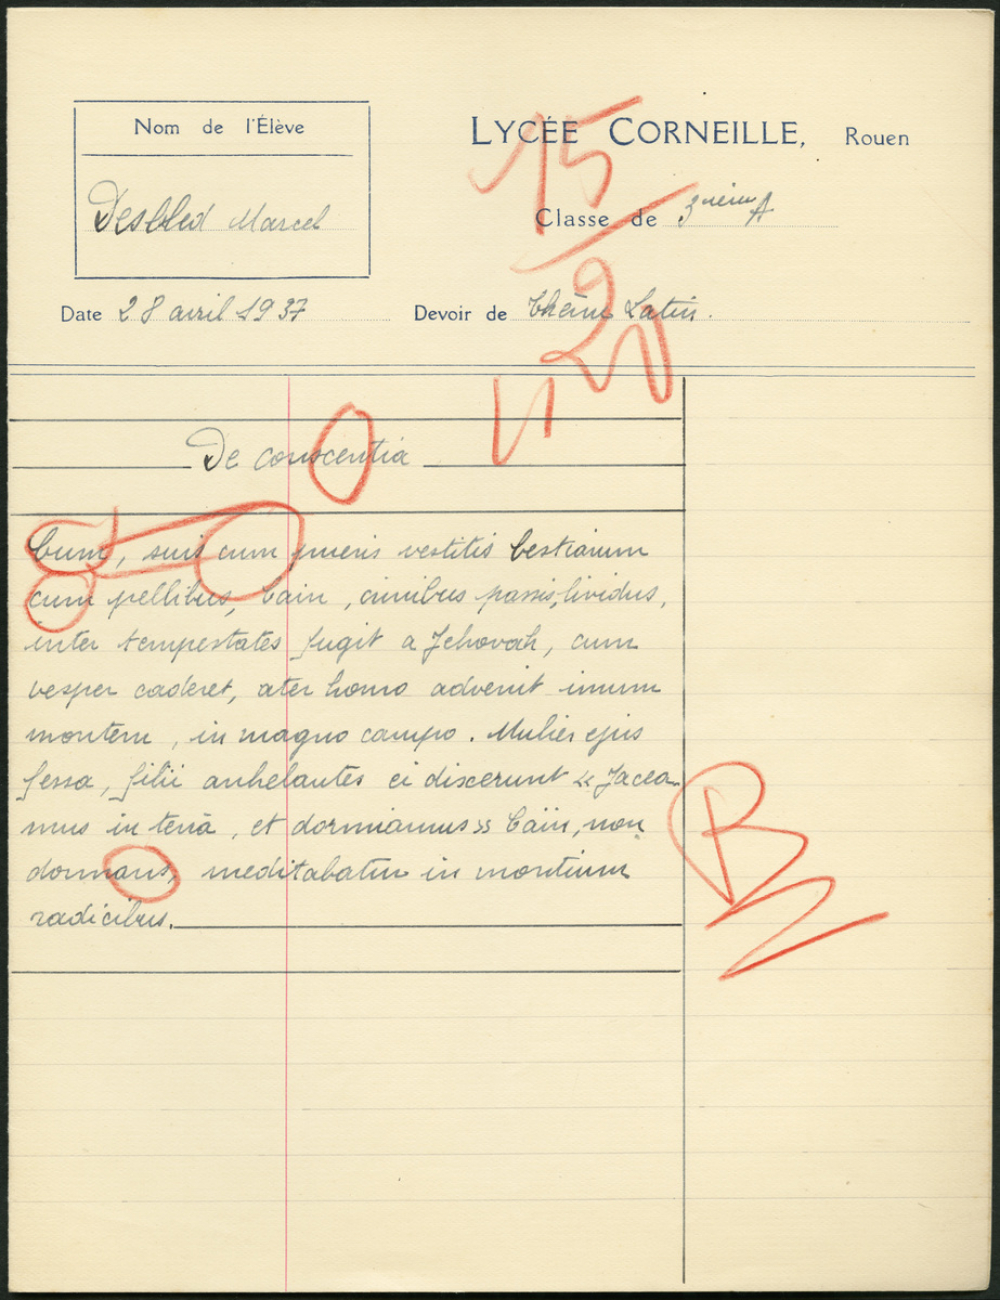 Nom de l'Élève
LYCÉE CORNEILLE, Rouen
15
Desbled Marcel
Classe de 3ième A
20
Date 28 avril 1937
Devoir de thème Latin.
De conscentia
Cum, suis cum pueris vestitis bestiarum
cum pellibus, Cain, crinibus passis, lividus,
inter tempestates fugit a Jehovah, cum
vesper caderet, ater homo advenit imum
montem, in magno campo. Mulier ejus
fessa, filii anhelantes ei discerunt « Jacea
mus in terrâ, et dormiamus » Caïn, non
dormans, meditabatur in montium
radicibus.
B